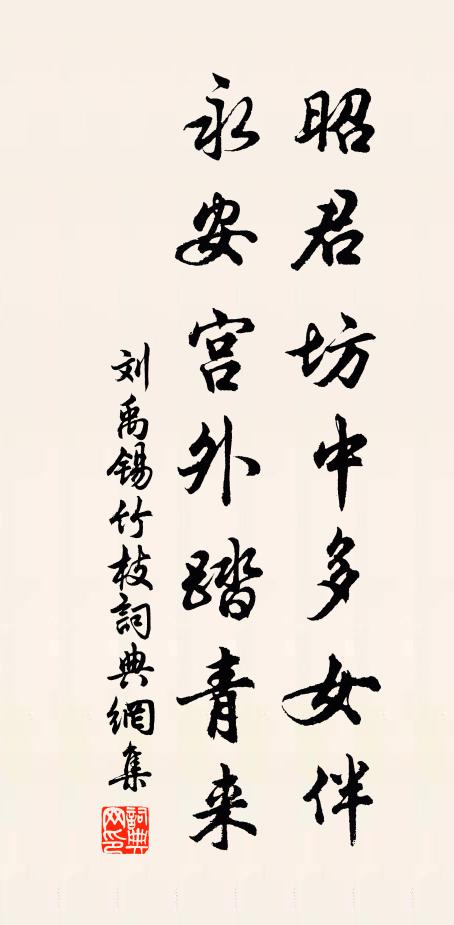 昭君坊中多女伴
永安宫外踏青来
刘禹锡竹枝詞典網集
詞典網印